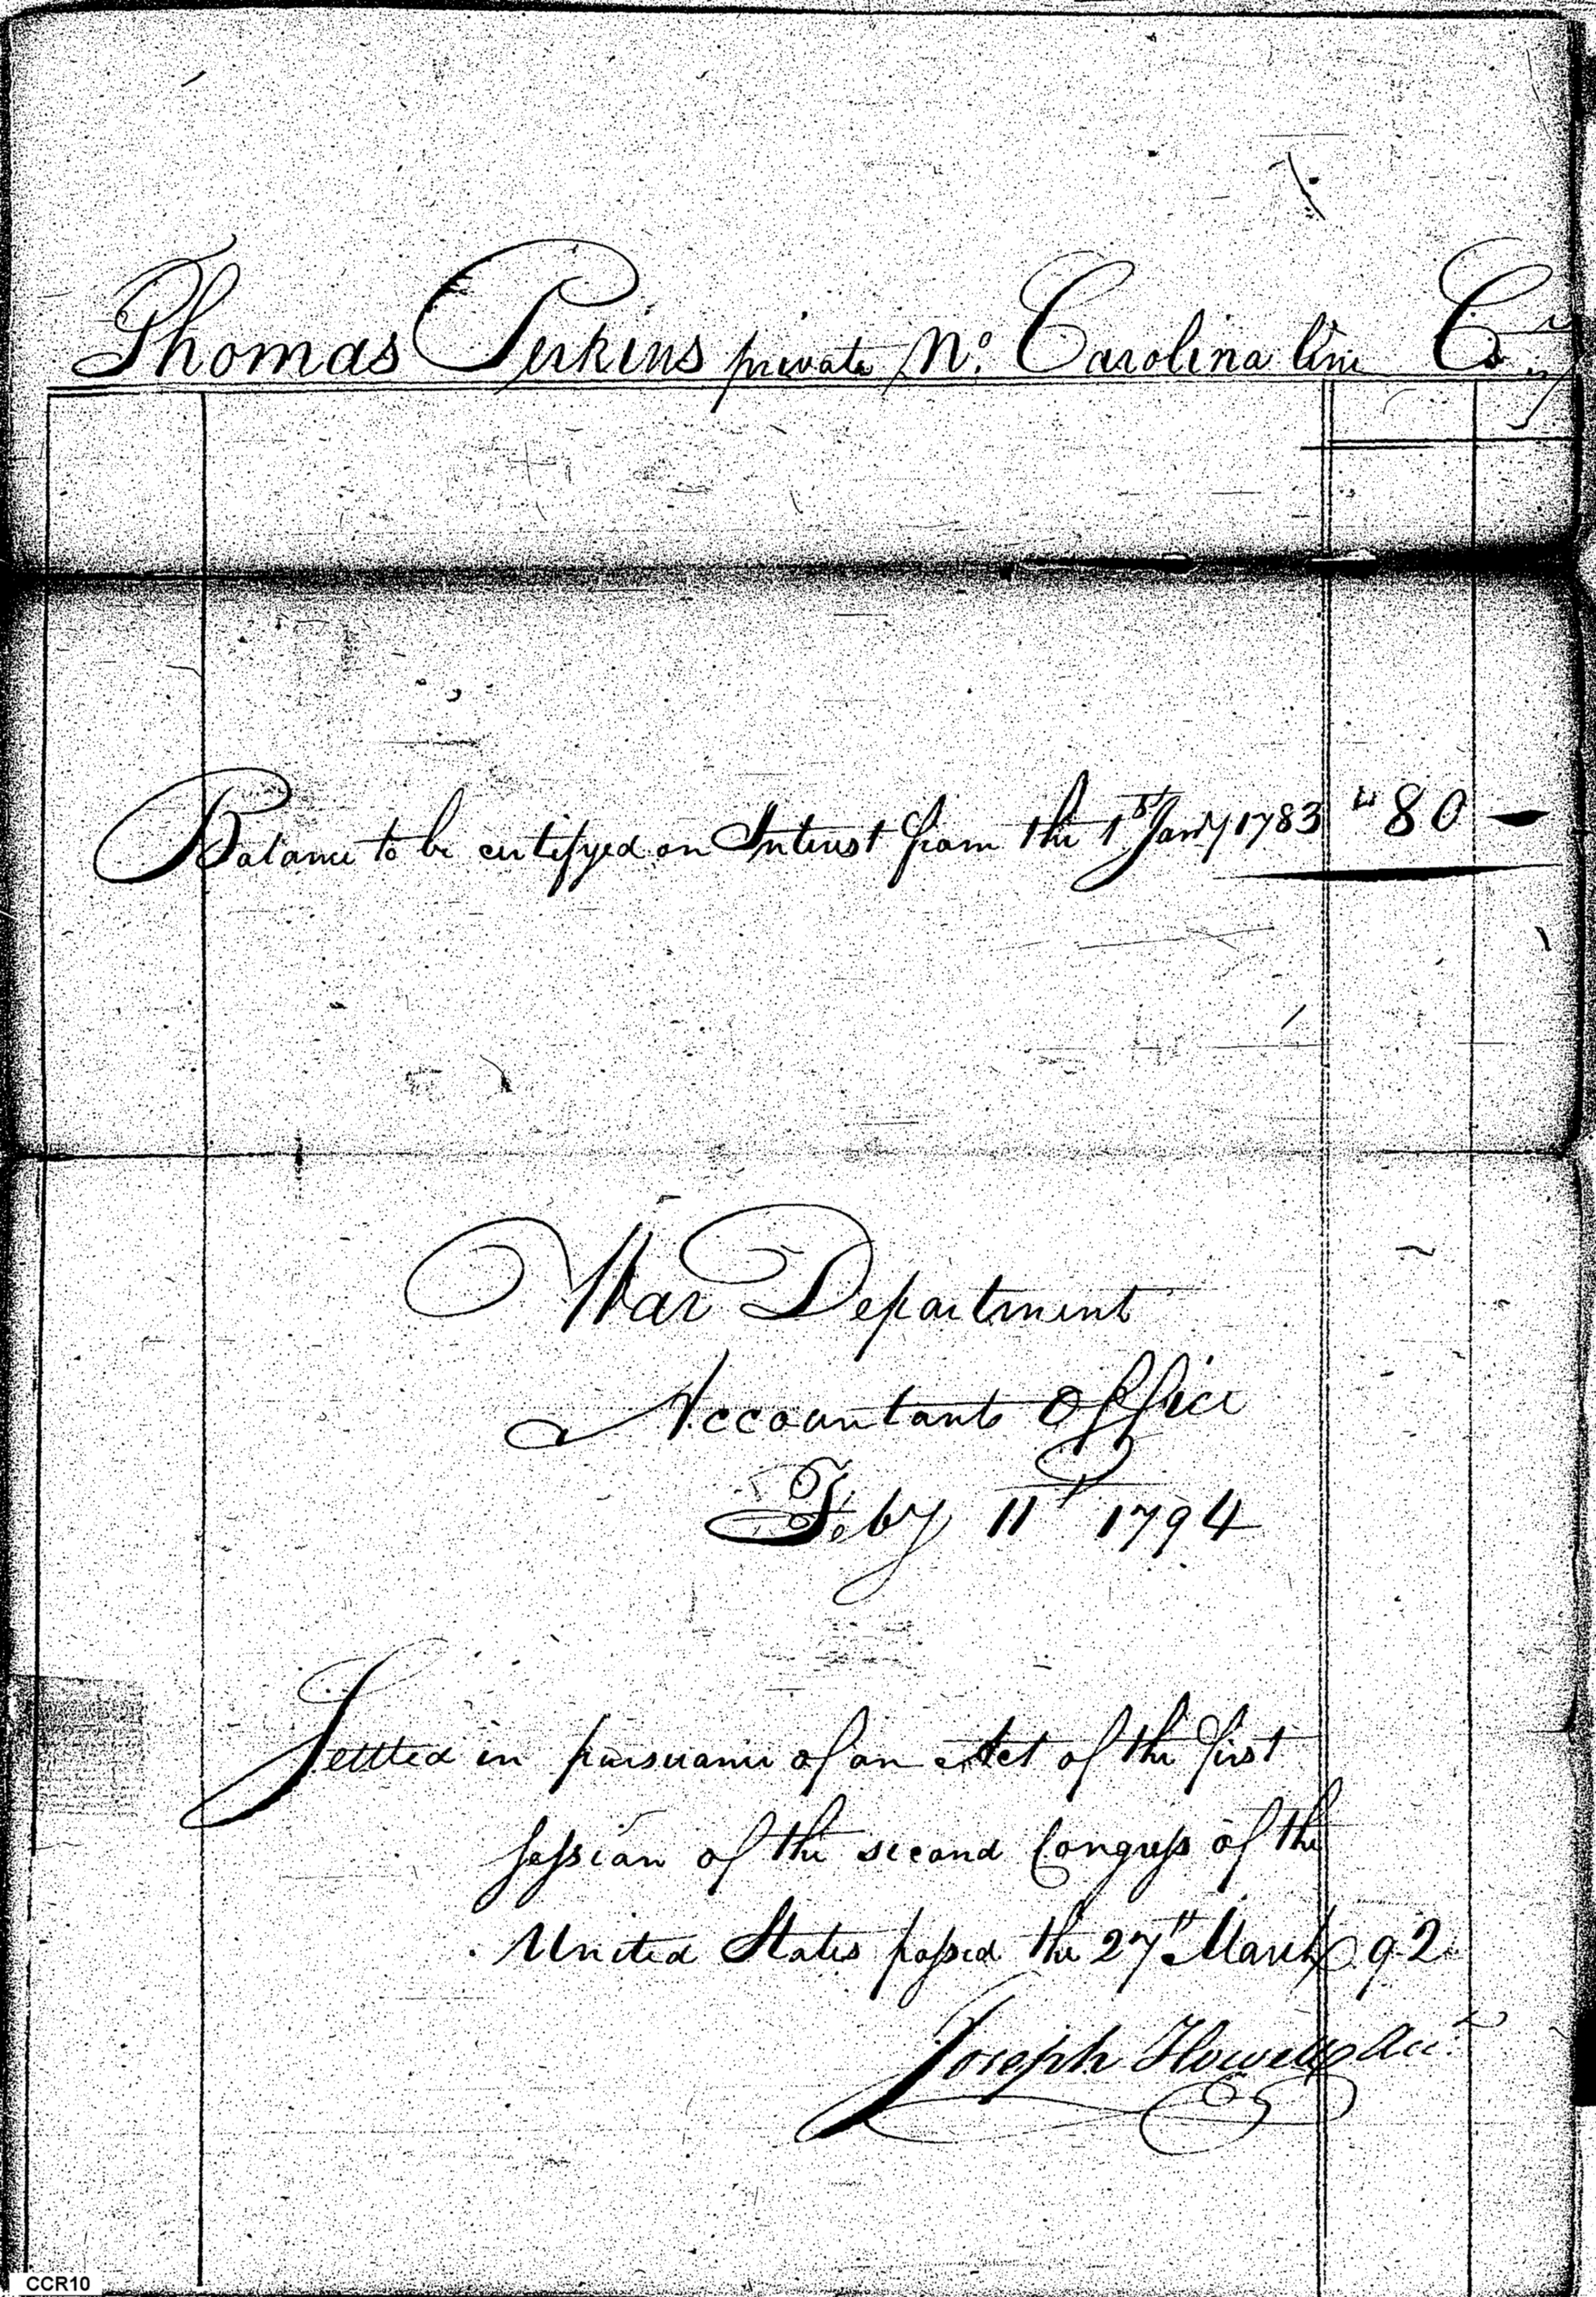 Thomas Perkins private No. Carolina line Cr
Balance to be certifyed on Interest from the 1st Jany 1783 80 —
War Department
Accountants Office
Feby 11th 1794
Settled in pursuance of an Act of the first
session of the second Congress of the
United States passed the 27th March 92
Joseph Howell Acct
CCR10